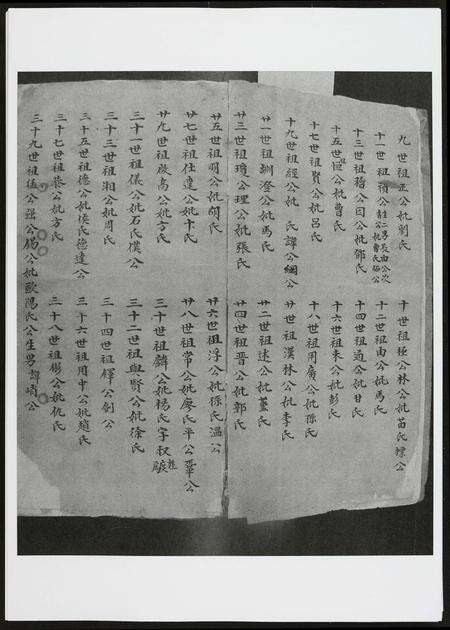 九世祖正公妣劉氏
十世祖極公林公妣苗氏標公
十一世祖積公
十二世祖由公妣馬氏
十三世祖稽公因公妣鄧氏
十四世祖適公妣甘氏
十五世祖恒公妣曹氏
十六世祖來公妣彭氏
十七世祖賢公妣呂氏
十八世祖用廣公妣孫氏
十九世祖經公妣 氏譚公綱公
廿世祖漢林公妣李氏
廿一世祖釧澄公妣馬氏
廿二世祖述公妣董氏
廿三世祖瓊公理公妣張氏
廿四世祖晋公妣郭氏
廿五世祖萌公妣簡氏
廿六世祖淳公妣孫氏溫公
廿七世祖仕達公妣卞氏
廿八世祖常公妣廖氏平公肇公
廿九世祖啟高公妣方氏
三十世祖麟公妣楊氏字
三十一世祖儀公妣石氏僕公
三十二世祖與賢公妣徐氏
三十三世祖湘公妣周氏
三十四世祖鐸公劍公
三十五世祖德公妣侯氏德達公
三十六世祖用中公妣趙氏
三十七世祖榮公妣方氏
三十八世祖彬公妣仇氏
三十九世祖 公強公 公妣歐陽氏公生男